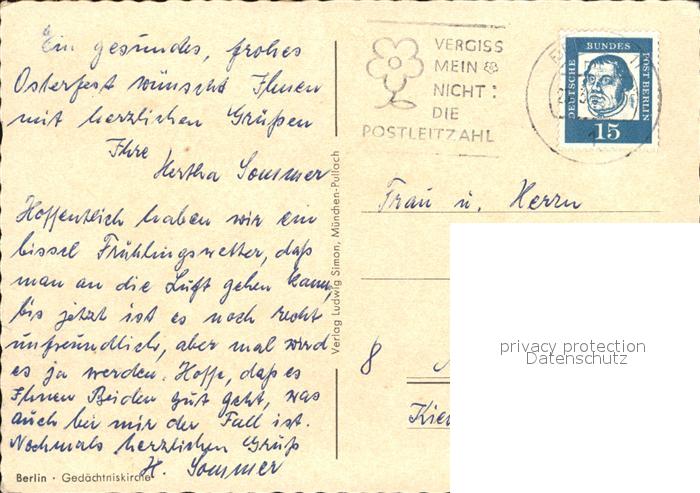 Ein gesundes, frohes
Osterfest wünscht Ihnen
mit herzlichen Grüßen
Ihre
Hertha Sommer
Hoffentlich haben wir ein
bissel Frühlingswetter, daß
man an die Luft gehen kann,
bis jetzt ist es noch recht
unfreundlich, aber mal wird
es ja werden. Hoffe, daß es
Ihnen Beiden gut geht, was
auch bei mir der Fall ist.
Nochmals herzlichen Gruß
H. Sommer
Berlin · Gedächtniskirche
Verlag Ludwig Simon, München-Pullach
VERGISS
MEIN
NICHT:
DIE
POSTLEITZAHL
DEUTSCHE BUNDESPOST BERLIN
15
Frau u. Herrn
8
privacy protection
Datenschutz